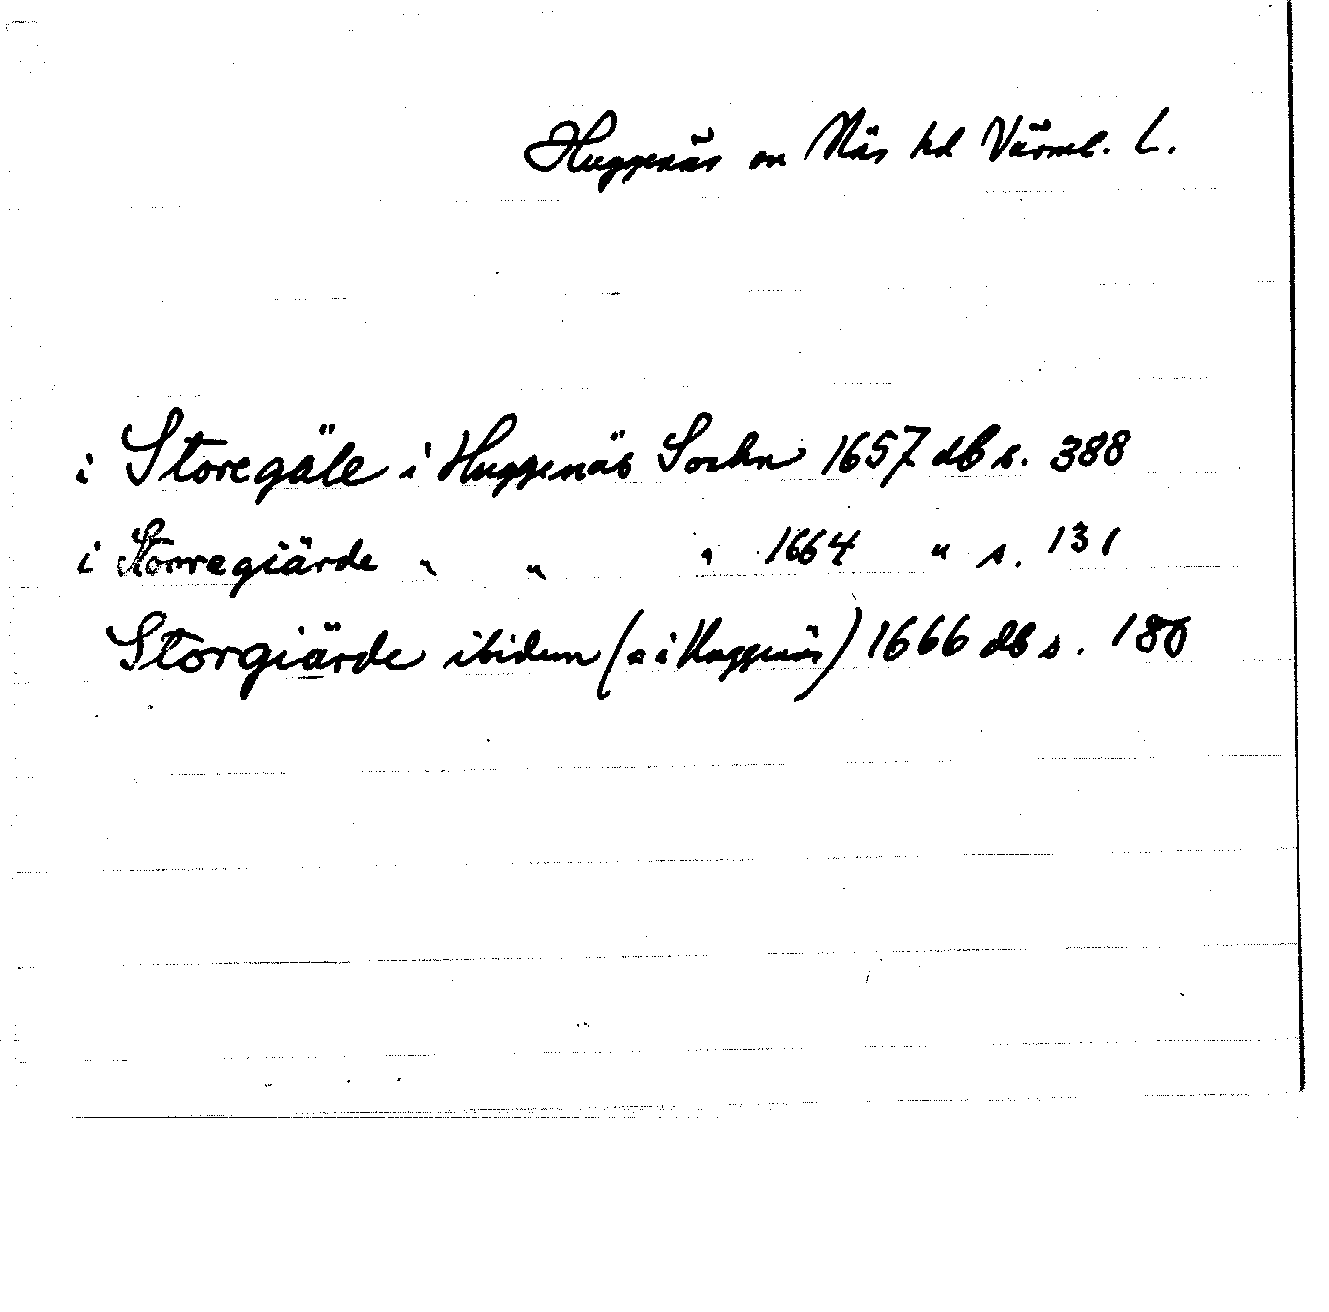 Huggenäs sn Näs hd Värml. L.
i Storegäle i Huggenäs Sochn 1657 db s. 388
i Storregiärde " " " 1664 " s. 131
Storgiärde ibidem (ɔ: i Huggenäs) 1666 db s. 180